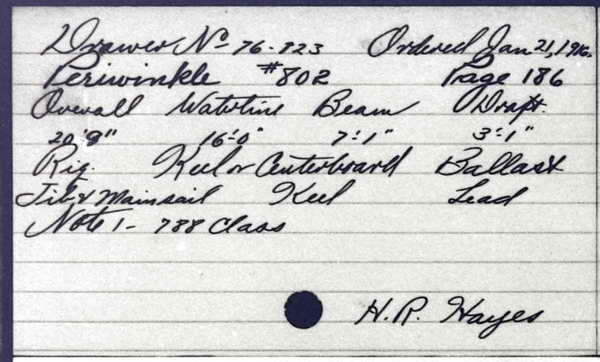 Drawer No 76-823 Ordered Jan 21, 1916.
Periwinkle #802 Page 186
Overall Waterline Beam Draft
20'9" 16'-0" 7'-1" 3'-1"
Rig. Keel or Centerboard Ballast
Jib & Mainsail Keel Lead
Note 1- 788 Class
H.R. Hayes